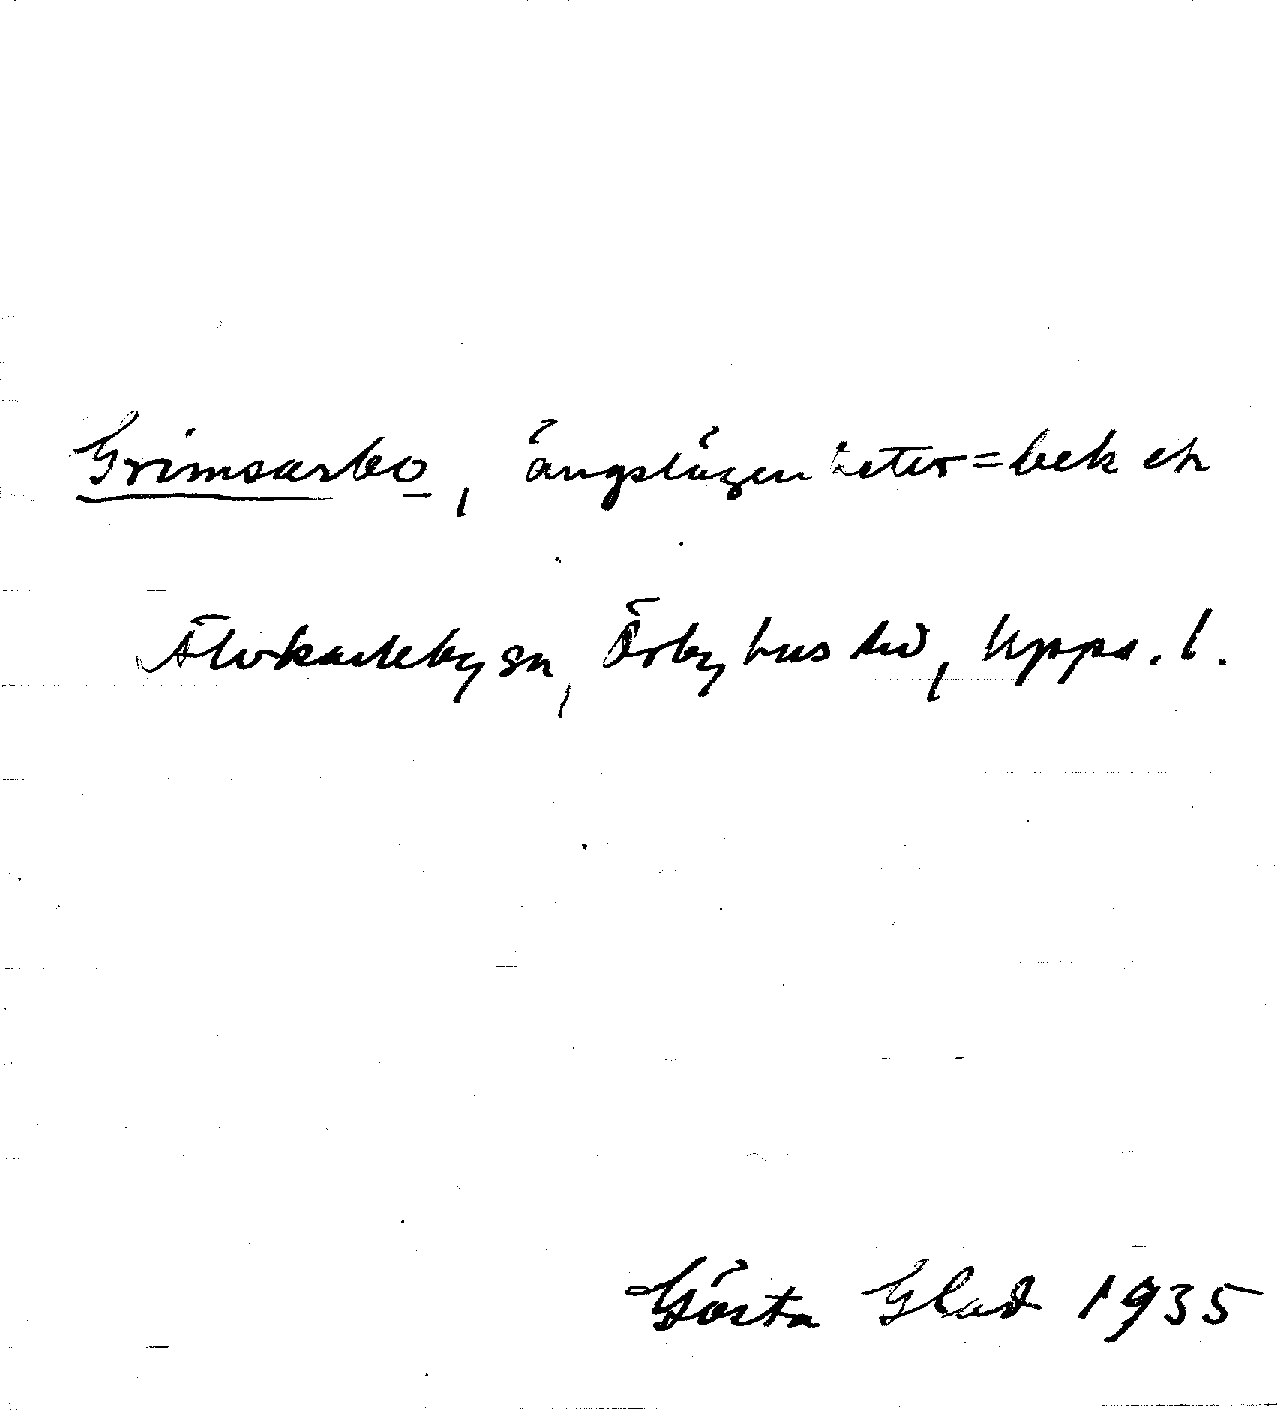 Grimsarbo, ängslägenheter=bek eh
Älvkarleby sn, Örbyhus hd, Upps. l.
Gösta Glad 1935